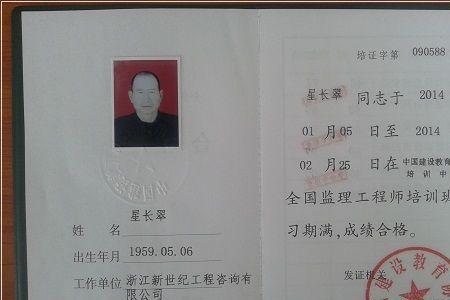 星长翠
姓 名
出生年月 1959.05.06
工作单位 浙江新世纪工程咨询有
限公司
培证字第 090588
星长翠 同志于 2014
01 月 05 日至 2014
02 月 25 日在 中国建设教育
培训中
全国监理工程师培训班
习期满,成绩合格。
发证机关
建设教育